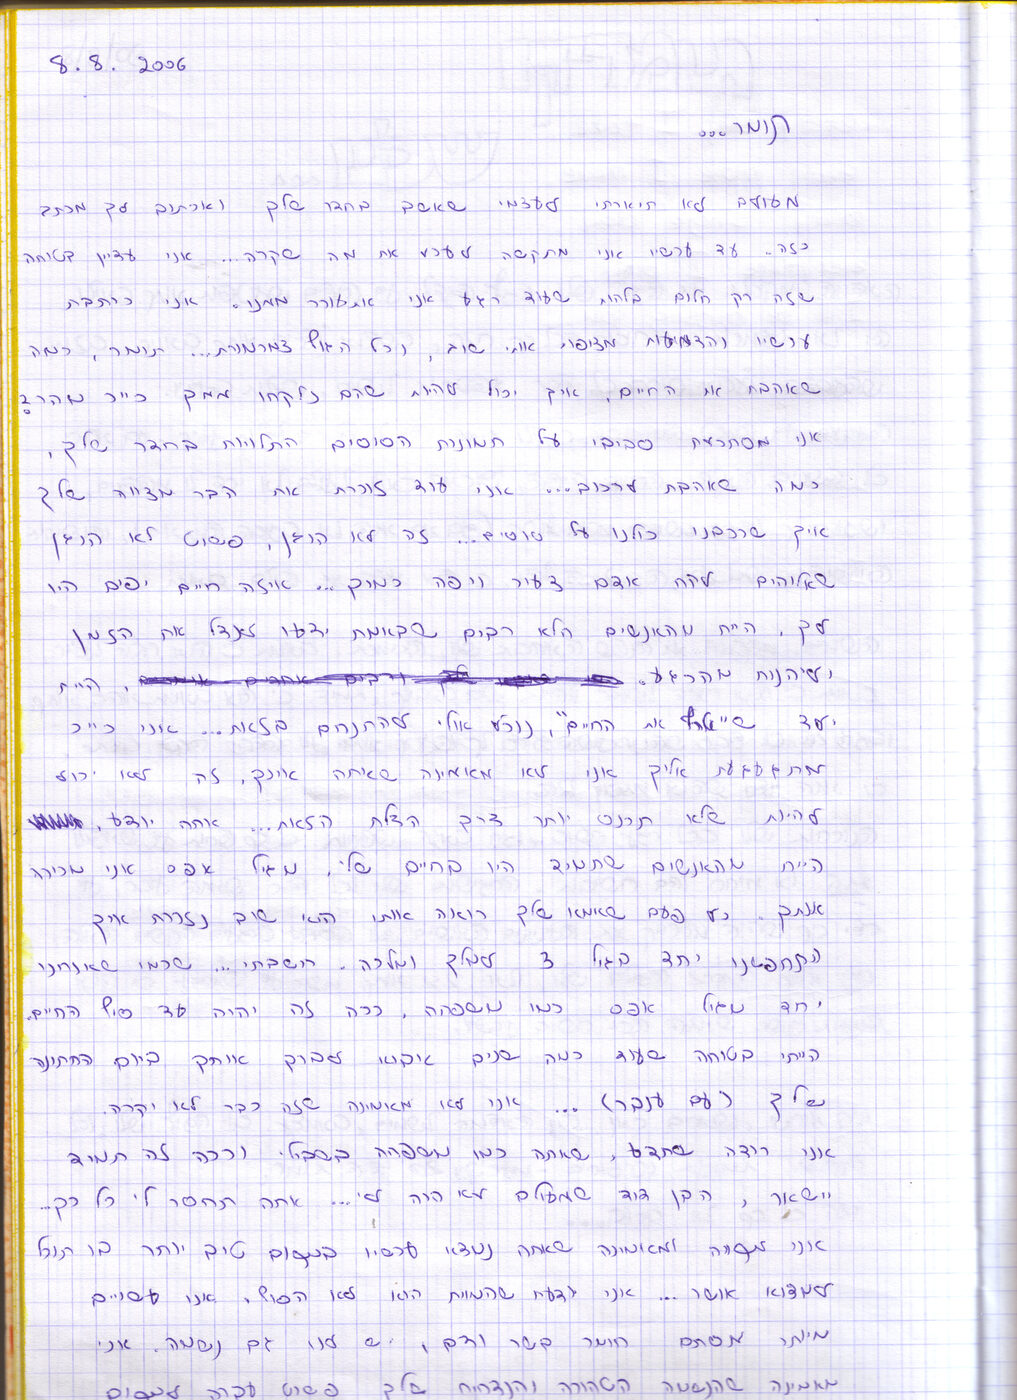 8.8.2006
תומר...
מעולם לא תיארתי לעצמי שאשב בחדר שלך ואכתוב לך מכתב
כזה.. עד עכשיו אני מתקשה לעכל את מה שקרה... אני עדיין בטוחה
שזה רק חלום בלהות שעוד רגע אני אתעורר ממנו. אני כותבת
עכשיו והדמעות מציפות אותי שוב, וכל הגוף צמרמורת... תומר, כמה
שאהבת את החיים, איך יכול להיות שהם נלקחו ממך כ״כ מהר?
אני מסתכלת סביבי על תמונות הסוסים התלויות בחדר שלך,
כמה שאהבת לרכוב... אני עוד זוכרת את הבר מצווה שלך
איך שרכבנו כולנו על סוסים... זה לא הוגן, פשוט לא הוגן
שאלוהים לקח אדם צעיר ויפה כמוך... איזה חיים יפים היו
לך, היית מהאנשים הלא רבים שבאמת ידעו לנצל את הזמן
וליהנות מהרגע. היית
ילד ש״אהב את החיים״, נוכל אולי להתנחם בזאת... אני כ״כ
מתגעגעת אליך אני לא מאמינה שאתה אינך, זה לא יכול
להיות שלא תכנס יותר דרך הדלת הזאת... אתה יודע,
היית מהאנשים שתמיד היו בחיים שלי, מגיל אפס אני מכירה
אותך.. כל פעם שאמא שלך רואה אותי היא שוב נזכרת איך
התחפשנו יחד בגיל 3 למלך ומלכה.. חשבתי... שכמו שאנחנו
יחד מגיל אפס כמו משפחה, ככה זה יהיה עד סוף החיים.
הייתי בטוחה שעוד כמה שנים אבוא לברך אותך ביום החתונה
שלך (עם ענבר)... אני לא מאמינה שזה כבר לא יקרה.
אני רוצה שתדע, שאתה כמו משפחה בשבילי וככה זה תמיד
יישאר, הבן דוד שמעולם לא היה לי... אתה תחסר לי כל כך...
אני מקווה ומאמינה שאתה נמצא עכשיו במקום טוב יותר בו תוכל
למצוא אושר... אני יודעת שהמוות הוא לא הסוף. אנו עשויים
מיותר מסתם חומר בשר ודם, יש לנו גם נשמה. אני
מאמינה שהנשמה הטהורה והנדירה שלך פשוט עברה למקום